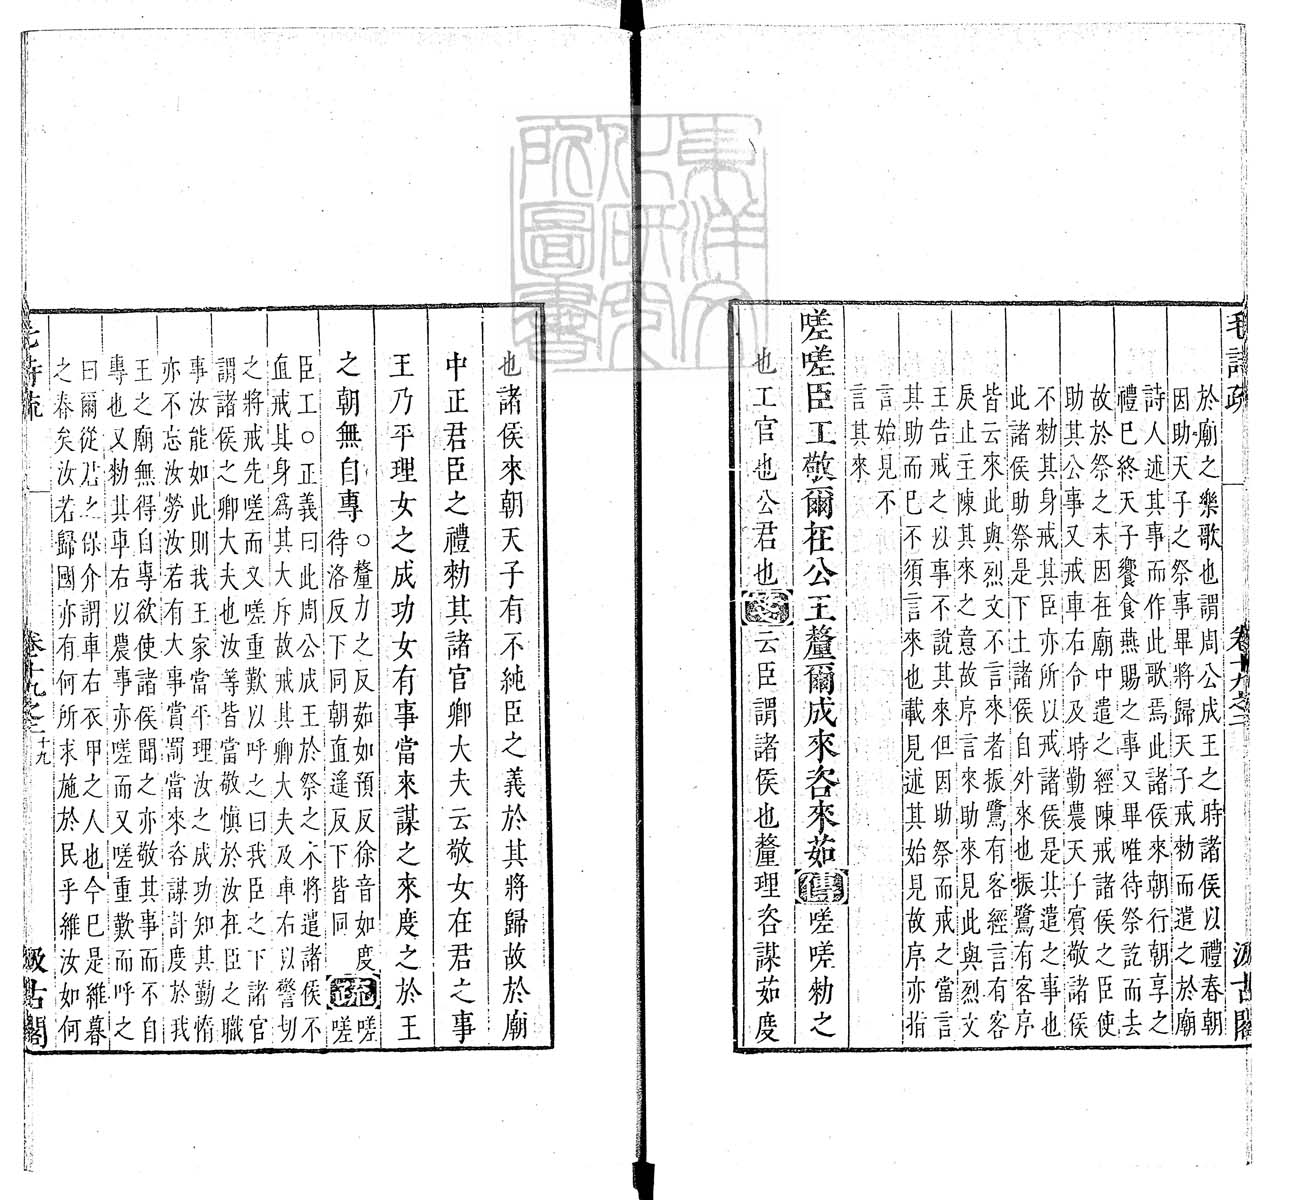 毛詩疏
卷十九之二
汲古閣
於廟之樂歌也謂周公成王之時諸侯以禮春朝
因助天子之祭事畢將歸天子戒勑而遣之於廟
詩人述其事而作此歌焉此諸侯來朝行朝享之
禮已終天子饗食燕賜之事又畢唯待祭訖而去
故於祭之末因在廟中遣之經陳戒諸侯之臣使
助其公事又戒車右令及時勤農天子賓敬諸侯
不勑其身戒其臣亦所以戒諸侯是其遣之事也
此諸侯助祭是下土諸侯自外來也振鷺有客序
皆云來此與烈文不言來者振鷺有客經言有客
戾止主陳其來之意故序言來助來見此與烈文
王告戒之以事不說其來但因助祭而戒之當言
其助而已不須言來也載見述其始見故序亦指
言始見不
言其來
嗟嗟臣工敬爾在公王釐爾成來咨來茹傳嗟嗟勑之
也工官也公君也箋云臣謂諸侯也釐理咨謀茹度
也諸侯來朝天子有不純臣之義於其將歸故於廟
中正君臣之禮勑其諸官卿大夫云敬女在君之事
王乃平理女之成功女有事當來謀之來度之於王
之朝無自專○釐力之反茹如預反徐音如度
待洛反下同朝直遙反下皆同疏嗟嗟
臣工○正義曰此周公成王於祭之末將遣諸侯不
直戒其身爲其大斥故戒其卿大夫及車右以警切
之將戒先嗟而又嗟重歎以呼之曰我臣之下諸官
謂諸侯之卿大夫也汝等皆當敬慎於汝在臣之職
事汝能如此則我王家當平理汝之成功知其勤惰
亦不忘汝勞汝若有大事賞罰當來咨謀計度於我
王之廟無得自專欲使諸侯聞之亦敬其事而不自
專也又勑其車右以農事亦嗟而又嗟重歎而呼之
曰爾從君之保介謂車右衣甲之人也今已是維暮
之春矣汝若歸國亦有何所求施於民乎維汝如何
毛詩疏
卷十九之二
十九
汲古閣